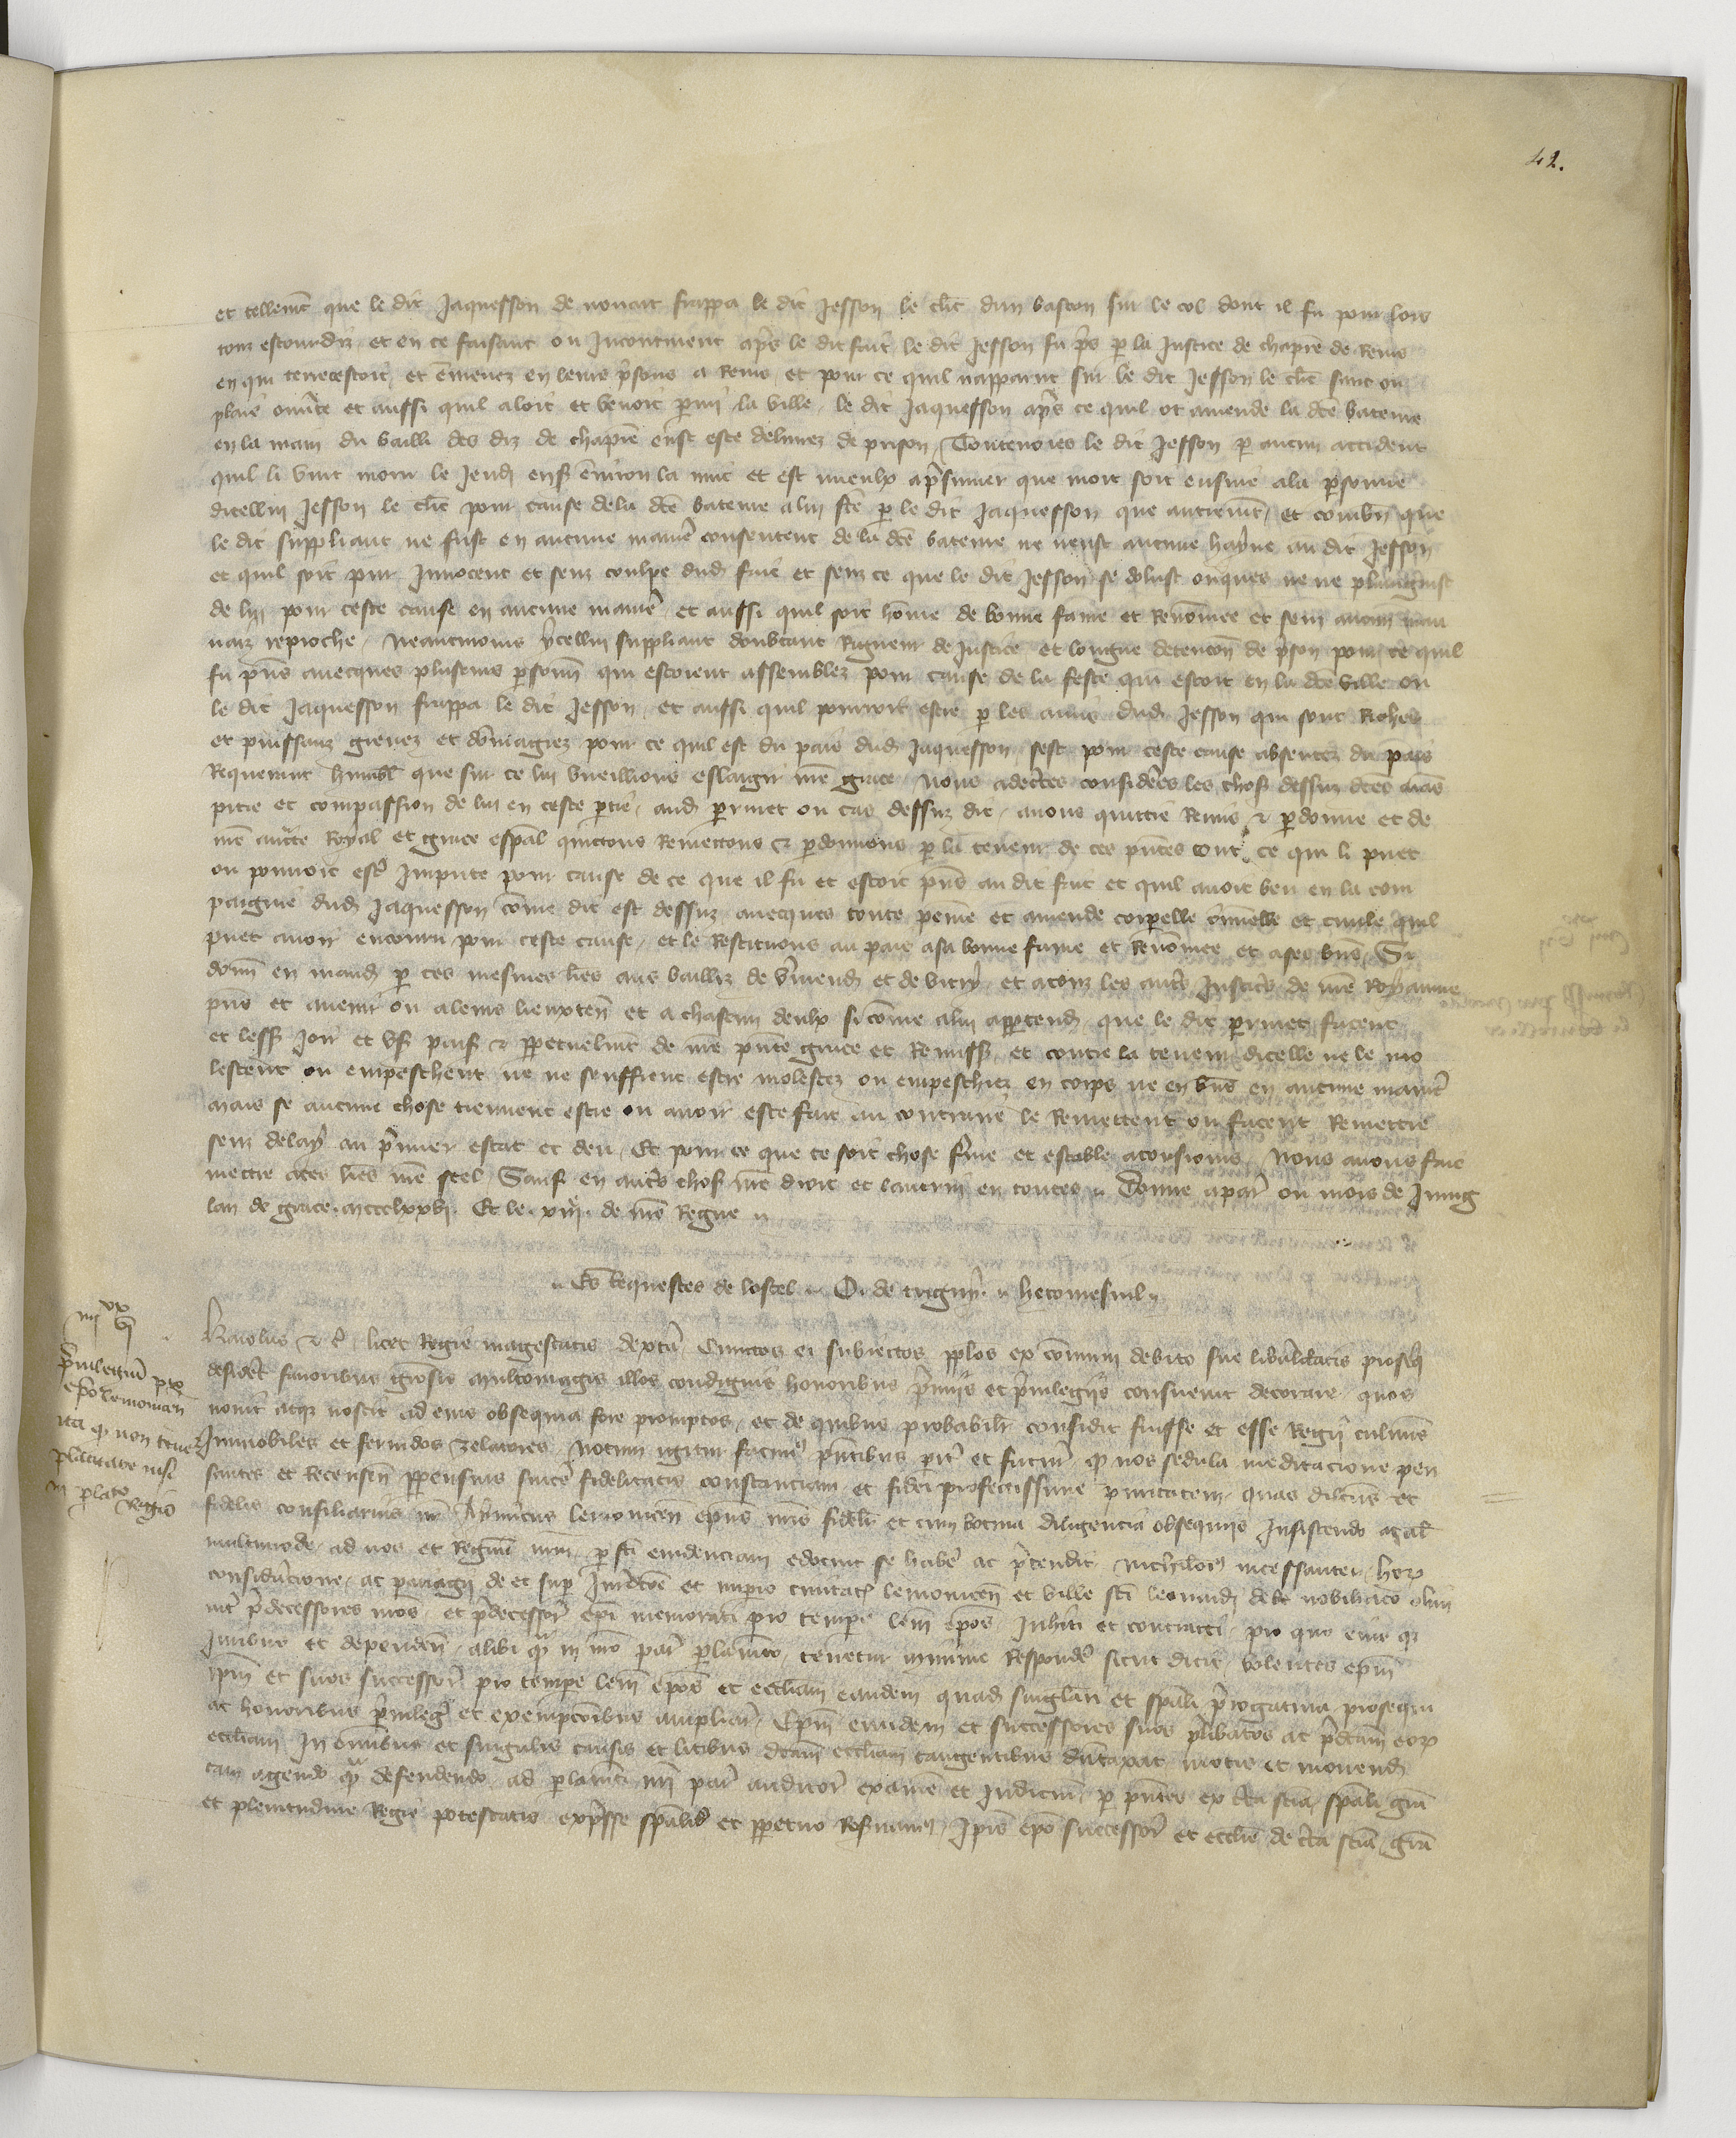 42.
et tellemt que le dit Jaquesson de noncat frappa le dit Jesson le clt dun baston sur le col dont il fu pour lors
tout estourdiz et en ce faisant ou Incontinent apres le dit fait le dit Jesson fu pris par la Justice de chapitre de Reins
en qui terre estoit et emenez en leurs prisons a Reins, et pour ce quil napparut sur le dit Jesson le clt sanc ou
plaie ouverte et aussi quil aloit et venoit parmi la ville, le dit Jaquesson apres ce quil ot amende la dce bateure
en la main du bailli des diz de chapitre eust este delivrez de prison, Toutevoies le dit Jesson par aucun accident
quil li vint morut le Jeudi ens environ la nuit et est mieulx a presumer que mort soit ensuie a la personne
dicellui Jesson le clt pour cause de la dce bateure a lui fce par le dit Jaquesson que autremt, et combn que
le dit suppliant ne fust en aucune maniere consentent de la dce bateure ne neust aucune hayne au dit Jesson
et quil soit pur Innocent et senz coulpe dud fait et senz ce que le dit Jesson se dolust onques ne ne plainsist
de ly pour ceste cause en aucune maniere et aussi quil soit home de bonne fame et Renommee et senz aucun mau
vaiz reproche, Neantmoins ycellui suppliant doubtant Rigueur de Justice et longue detencon de prison pour ce quil
fu pns avecques plusieurs personn qui estoient assemblez pour cause de la feste qui estoit en la dce ville ou
le dit Jaquesson frappa le dit Jesson, et aussi quil pourroit estre par les amis dud Jesson qui sont Riches
et puissanz grevez et dommagiez pour ce quil est du pais dud Jaquesson, sest pour ceste cause absentez du pais
Requerant humbl que sur ce lui vueillions eslargir nre grace Nous adecertes considerees les chos dessus dces aians
pitie et compassion de lui en ceste partie, aud Perrinet ou cas dessus dit, avons quittie Remis & pardonne et de
nre aucte Royal et grace espal quittons Remettons & pardonnons par la teneur de ces pntes tout ce qui li puet
ou pourroit estre Impute pour cause de ce que il fu et estoit pns au dit fait et quil avoit beu en la com
paignie dud Jaquesson come dit est dessus avecques toute peine et amende corporelle criminelle et civile quil
puet avoir encouru pour ceste cause, et le Restituons au pais a sa bonne fame et Renommee et a ses bns Si
donn en mand par ces mesmes lres aus bailliz de vermend et de vitry et a touz les autres Justiciers de nre Royaume
pns et avenir ou a leurs lieuxten et a chascun deulx si come a lui appartend que le dit perrinet facent
et less Joir et us pais & perpetuelmt de nre pnte grace et Remiss et contre la teneur dicelle ne le mo
lestent ou empeschent ne ne seuffrent estre molestez ou empeschiez en corps ne en bns en aucune maniere
mais se aucune chose tiennent estre ou avoir este fait au contraire le Remettent ou facent Remettre
senz delay au premier estat et deu, Et pour ce que ce soit chose ferme et estable a tousiours Nous avons fait
mettre a ces lres nre scel Sauf en autres chos nre droit et lautrui en toutes. Donne a par ou mois de Juing
lan de grace mccclxxvi Et le xiii de nre Regne
Es Requestes de lostel O. de trigny hetomesnil
iiii xx vi
Privilegium pro
epo Lemovicen
ita q non tenet
placitare nisi
in parlo Regio
Karolus &c licet Regie magestatis dextera Cunctos ei subiectos pplos ex comuni debito sue liberalitatis prosequi
desideret favoribus graciosis multomagis illos condignis honoribus premiis et privilegiis consuevit decorare, quos
novit atque noscit ad eius obsequia fore promptos, et de quibus probabilr confidit fuisse et esse Regii culminis
Inmobiles et fervidos zelatores, Notum igitur facimus pntibus pariter et futuris q nos sedula meditacione pen
santes et Recensen perpensius sincere fidelitatis constanciam et fidei profectissime puritatem, quas dilcus et
fidelis consiliarius nr Aymericus lemovicen epus nris fidelr et cum votiva diligencia obsequiis Insistendo
multimode, ad nos et Regnum nrm per fci evidenciam edocuit se habere ac pretendit Nichilominus incessanter, horum
consideracione, ac pariagii de et super Iurisdicoe et imperio civitatis lemovicen et ville sci leonardi de nobiliaco olim
inter predecessores nros et predecessores epi memorati pro tempore lem epos Inhiti et contracti, pro quo eiusque
Juribus et dependen alibi qm in nro par parlamento, tenetur minime Respondere sicut dicit, volentes epm
ipm et suos successores pro tempore lem epos et eccliam eandem quad singulari et spali prerogativa prosequi
ac honoribus privilegiis et exempcoibus ampliari, Epm eundem et successores suos prelibatos ac predcam eorum
eccliam In omibus et singulis causis et litibus dcam eccliam tangentibus dumtaxat motis et movend
tam agendo q defendendo, ad parlamti nri par auditor examen et Judicium, per pntes ex certa scia spali gra
et plenitudine Regie potestatis expresse spaliter et perpetuo Reservamus, Ipis epo successor et ecclie de certa scia gra